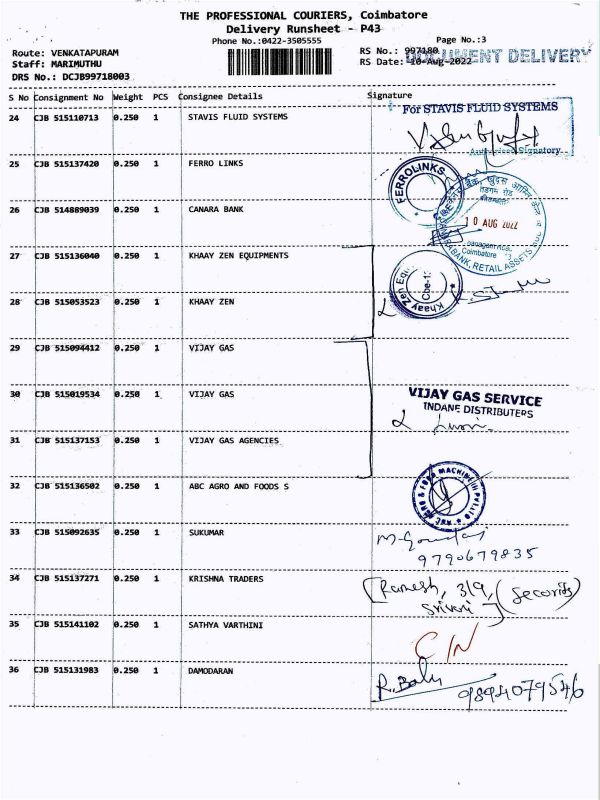 THE PROFESSIONAL COURIERS, Coimbatore
Delivery Runsheet - P43
Phone No.:0422-3505555
Page No.:3
Route: VENKATAPURAM
Staff: MARIMUTHU
DRS No.: DCJB99718003
RS No.: 997180
RS Date: 10-Aug-2022
DOCUMENT DELIVERY
S No Consignment No Weight PCS Consignee Details Signature
24 CJB 515110713 0.250 1 STAVIS FLUID SYSTEMS
For STAVIS FLUID SYSTEMS
Authorised Signatory
25 CJB 515137420 0.250 1 FERRO LINKS
FERROLINKS
26 CJB 514889039 0.250 1 CANARA BANK
10 AUG 2022
Coimbatore
BANK, RETAIL ASSETS
27 CJB 515136040 0.250 1 KHAAY ZEN EQUIPMENTS
Khaay Zen Equ
Cbe-1
28 CJB 515053523 0.250 1 KHAAY ZEN
29 CJB 515094412 0.250 1 VIJAY GAS
30 CJB 515019534 0.250 1 VIJAY GAS
VIJAY GAS SERVICE
INDANE DISTRIBUTERS
31 CJB 515137153 0.250 1 VIJAY GAS AGENCIES
32 CJB 515136502 0.250 1 ABC AGRO AND FOODS S
ABC AGRO & FOOD MACHINE
33 CJB 515092635 0.250 1 SUKUMAR
9790679835
34 CJB 515137271 0.250 1 KRISHNA TRADERS
Ramesh, 3/9, (Security)
35 CJB 515141102 0.250 1 SATHYA VARTHINI
C/N
36 CJB 515131983 0.250 1 DAMODARAN
R. Babu 9894079546